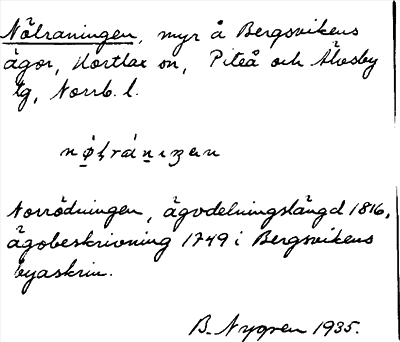 Nölraningen, myr å Bergsvikens
ägor, Hortlax sn, Piteå och Älvsby
tg, Norrb. l.
Norrödningen, ägodelningslängd 1816,
ägobeskrivning 1749 i Bergsvikens
byaskrin.
B. Nygren 1935.